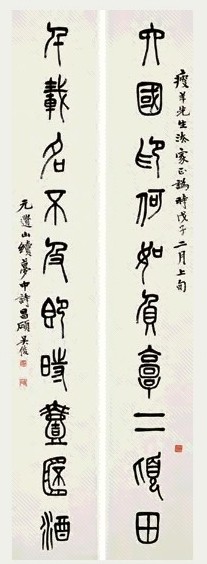 瘦羊先生法家正譌時戊子二月上旬
六國印何如負郭二頃田
千載名不及即時壹桮酒
元遺山續夢中詩昌碩吳俊